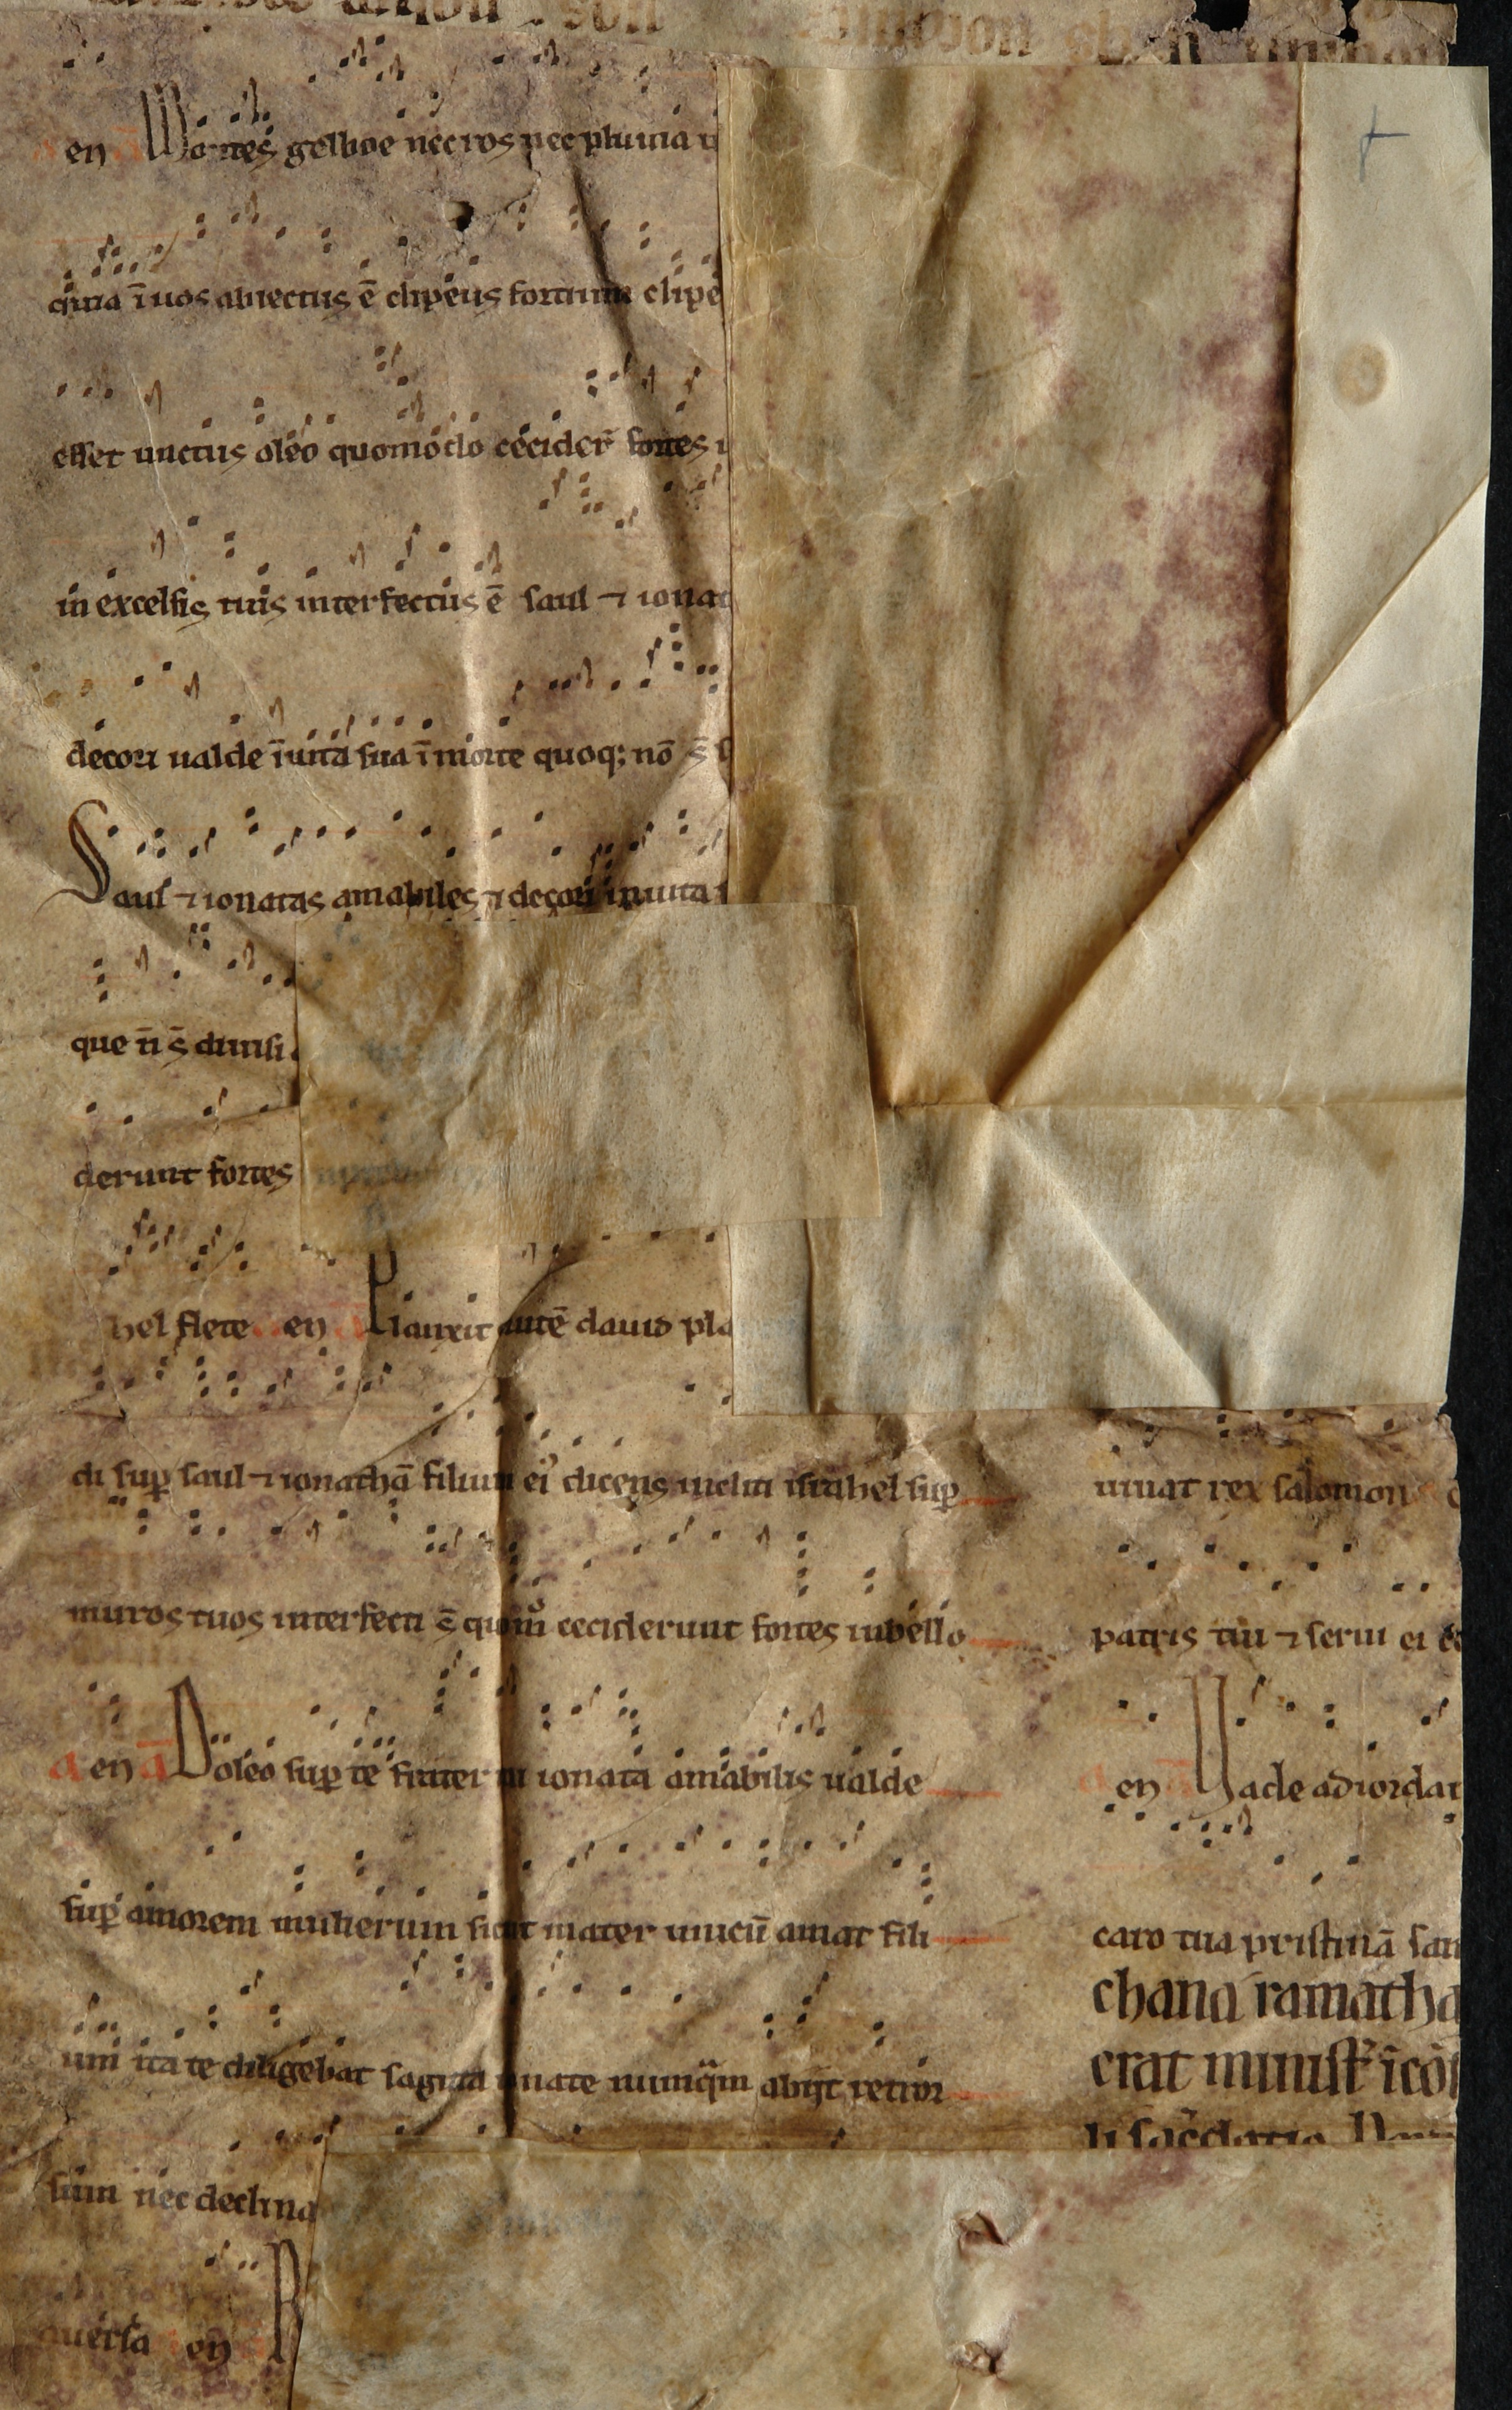 en Montes gelboe nec ros nec pluuia
quia ī uos abiectus ē clipeus fortium clipe
esset unctus oleo quomodo cecider̄ fortes
in excelsis tuis interfectus ē saul ⁊ ionat
decori ualde ī uita sua ī morte quoq; nō s̄
Saul ⁊ ionatas amabiles ⁊ decori in uita
que n̄ s̄ diuisi
derunt fortes
hel flete en Planxit autē dauid pla
di suꝑ saul ⁊ ionathā filium ei᾽ dicens incliti israhel suꝑ
muros tuos interfecti s̄ quom̊ ceciderunt fortes in bello
a en a Doleo suꝑ te frater mi ionata amabilis ualde
suꝑ amorem mulierum sicut mater unicū amat fili
um ita te diligebat sagitta ionate numq̄m abijt retror
sum nec declina
auersa en
uiuat rex salomon
patris tui ⁊ serui ei
en Vade ad iordan
caro tua pristinā san
chana ramatha
erat minist̄ ī cō
li sac̄dotis